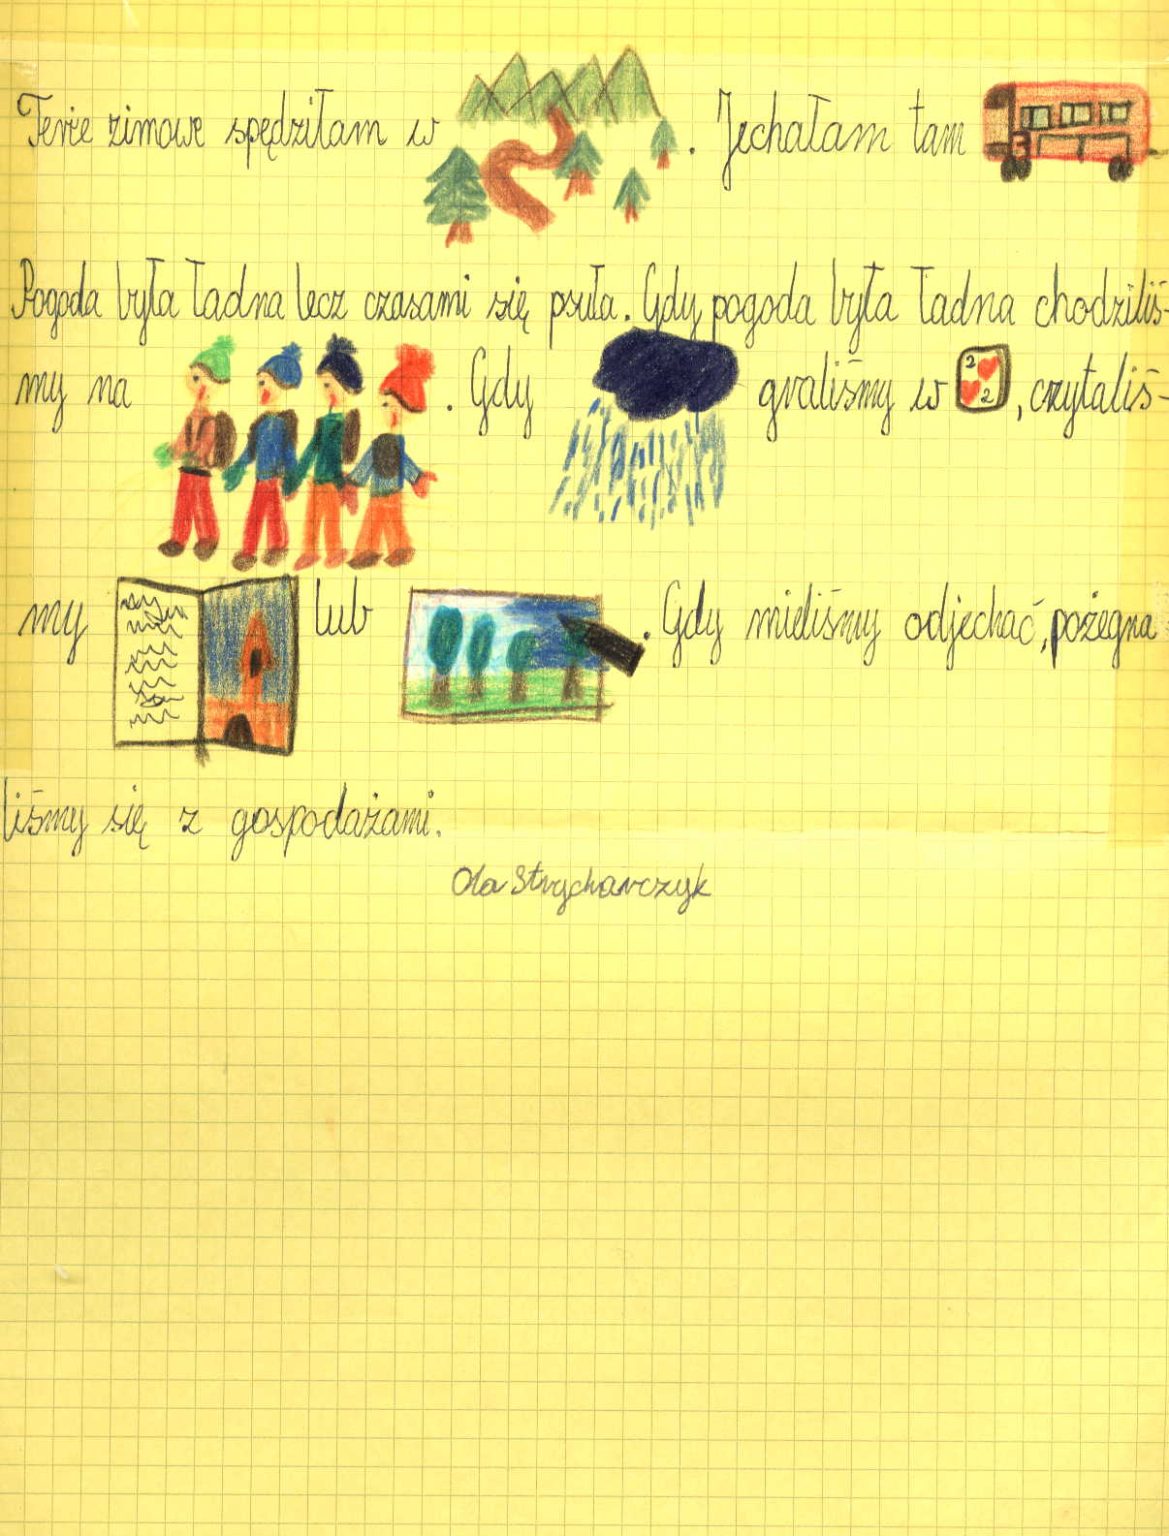 Ferie zimowe spędziłam w . Jechałam tam
Pogoda była ładna lecz czasami się psuła. Gdy pogoda była ładna chodziliś-
my na . Gdy graliśmy w 2 2 , czytaliś-
my lub . Gdy mieliśmy odjechać, pożegna
liśmy się z gospodażami.
Ola Strycharczyk